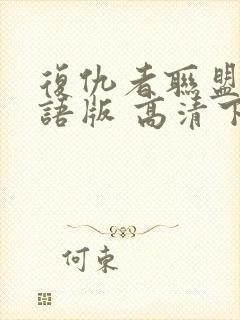 復仇者聯盟
語版 高清下
何束